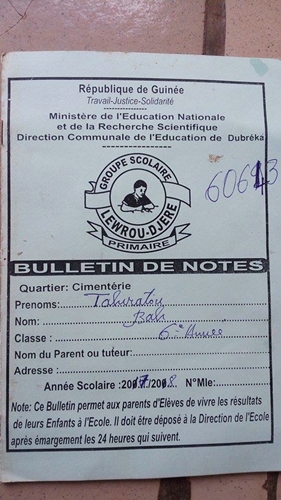 République de Guinée
Travail-Justice-Solidarité
Ministère de l'Education Nationale
et de la Recherche Scientifique
Direction Communale de l'Education de Dubréka
GROUPE SCOLAIRE
LEWROU-DJERE
PRIMAIRE
BULLETIN DE NOTES
Quartier: Cimentérie
Prenoms:
Nom: Bah
Classe : 6ème Année
Nom du Parent ou tuteur:
Adresse :
Année Scolaire : 2017/2018. N°Mle:
Note: Ce Bulletin permet aux parents d'Elèves de vivre les résultats
de leurs Enfants à l'Ecole. Il doit être déposé à la Direction de l'Ecole
après émargement les 24 heures qui suivent.